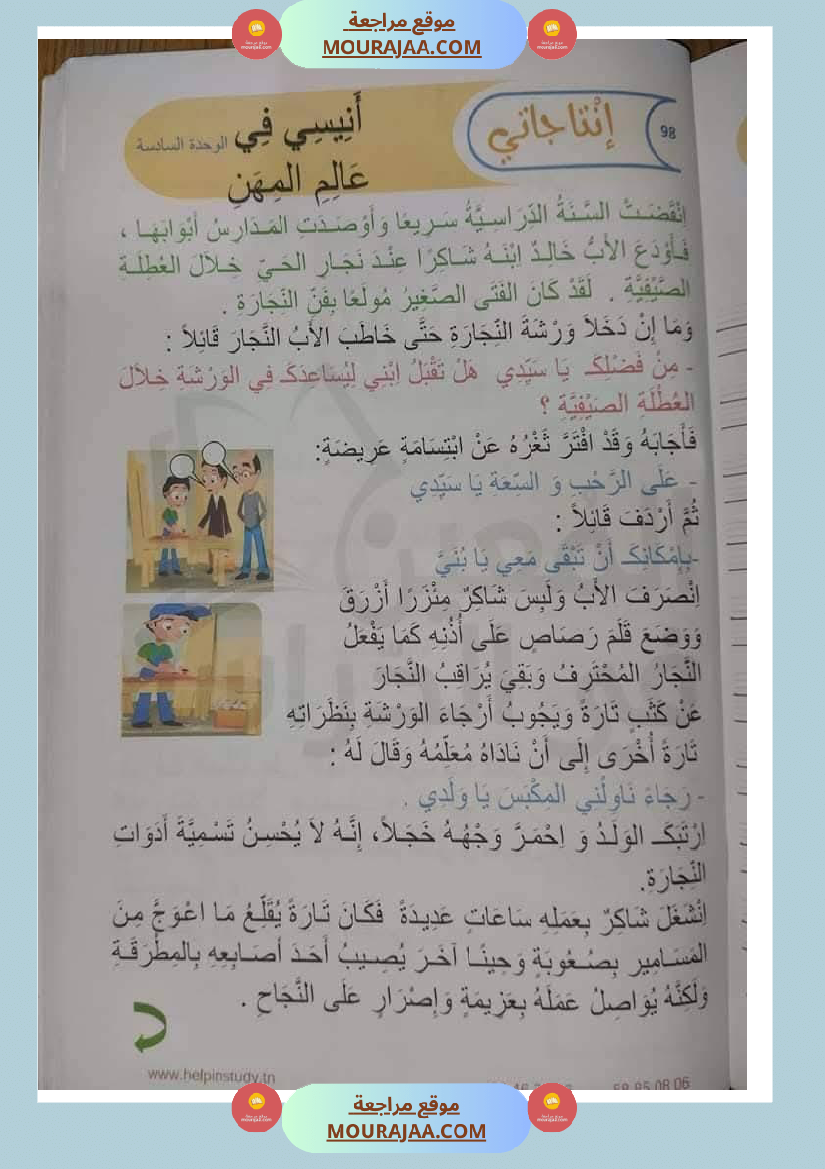 موقع مراجعة
MOURAJAA.COM
98
إنتاجاتي
أَنِيسِي فِي
الوحدة السادسة
عَالِمِ المِهَنِ
اِنْقَضَتْ السَّنَةُ الدِّرَاسِيَّةُ سَرِيعًا وَأَوْصَدَتِ المَدَارِسُ أَبْوَابَهَا ،
فَأَوْدَعَ الأَبُّ خَالِدٌ اِبْنَهُ شَاكِرًا عِنْدَ نَجَارِ الحَيِّ خِلاَلَ العُطْلَةِ
الصَّيْفِيَّةِ . لَقَدْ كَانَ الفَتَى الصَّغِيرُ مُولَعًا بِفَنِّ النِّجَارَةِ .
وَمَا إِنْ دَخَلاَ وَرْشَةَ النِّجَارَةِ حَتَّى خَاطَبَ الأَبُ النَّجَارَ قَائِلاً :
- مِنْ فَضْلِكَ يَا سَيِّدِي هَلْ تَقْبَلُ ابْنِي لِيُسَاعِدَكَ فِي الوَرْشَةِ خِلاَلَ
العُطْلَةِ الصَيْفِيَّةِ ؟
فَأَجَابَهُ وَقَدْ افْتَرَّ ثَغْرُهُ عَنْ ابْتِسَامَةٍ عَرِيضَةٍ:
- عَلَى الرَّحْبِ وَ السِّعَةِ يَا سَيِّدِي
ثُمَّ أَرْدَفَ قَائِلاً :
-بِإِمْكَانِكَ أَنْ تَبْقَى مَعِي يَا بُنَيَّ
اِنْصَرَفَ الأَبُ وَلَبِسَ شَاكِرٌ مِئْزَرًا أَزْرَقَ
وَوَضَعَ قَلَمَ رَصَاصٍ عَلَى أُذُنِهِ كَمَا يَفْعَلُ
النَّجَارُ المُحْتَرِفُ وَبَقِيَ يُرَاقِبُ النَّجَارَ
عَنْ كَثْبٍ تَارَةً وَيَجُوبُ أَرْجَاءَ الوَرْشَةِ بِنَظَرَاتِهِ
تَارَةً أُخْرَى إِلَى أَنْ نَادَاهُ مُعَلِّمُهُ وَقَالَ لَهُ :
- رَجَاءً نَاوِلْنِي المِكْبَسَ يَا وَلَدِي .
اِرْتَبَكَ الوَلَدُ وَ اِحْمَرَّ وَجْهُهُ خَجَلاً، إِنَّهُ لاَ يُحْسِنُ تَسْمِيَّةَ أَدَوَاتِ
النِّجَارَةِ.
اِنْشَغَلَ شَاكِرٌ بِعَمَلِهِ سَاعَاتٍ عَدِيدَةً فَكَانَ تَارَةً يُقَلِّعُ مَا اعْوَجَّ مِنَ
المَسَامِيرِ بِصُعُوبَةٍ وَحِينًا آخَرَ يُصِيبُ أَحَدَ أَصَابِعِهِ بِالمِطْرَقَةِ
وَلَكِنَّهُ يُوَاصِلُ عَمَلَهُ بِعَزِيمَةٍ وَإِصْرَارٍ عَلَى النَّجَاحِ .
www.helpinstudy.tn
موقع مراجعة
MOURAJAA.COM